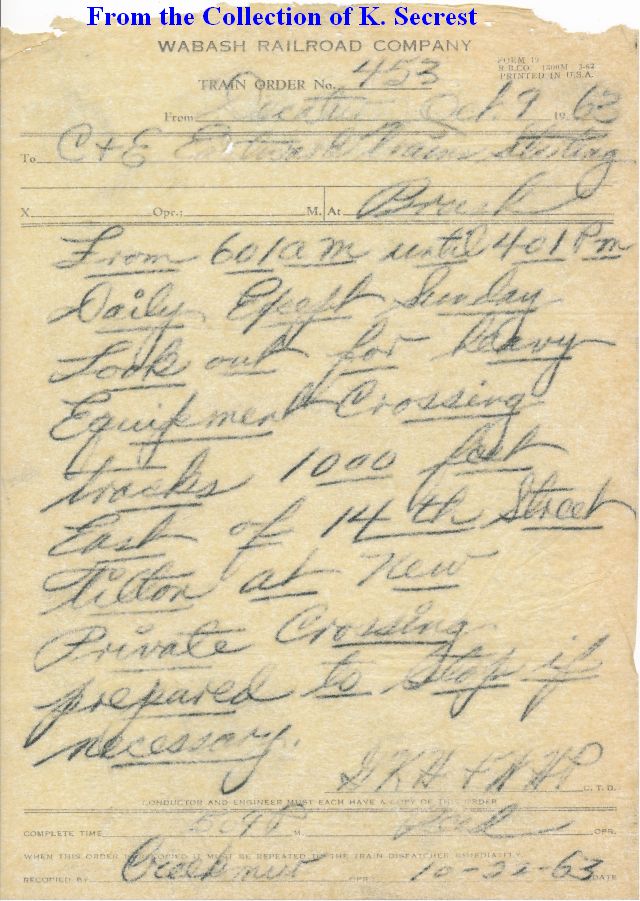 From the Collection of K. Secrest
WABASH RAILROAD COMPANY
FORM 19
R.R.CO. 1800M 3-62
PRINTED IN U.S.A.
TRAIN ORDER No. 453
From Decatur Oct. 9 1963
To C + E Eastward Trains Sterling
X Opr.; M. At Brush
From 601 am until 401 Pm
Daily Except Sunday
Look out for heavy
Equipment Crossing
tracks 1000 feet
East of 14th Street
Tilton at New
Private Crossing
prepared to Stop if
necessary.
C.T.D.
CONDUCTOR AND ENGINEER MUST EACH HAVE A COPY OF THIS ORDER
COMPLETE TIME M. OPR.
WHEN THIS ORDER IS RECOPIED IT MUST BE REPEATED TO THE TRAIN DISPATCHER IMMEDIATELY.
RECOPIED BY OPR. 10-22-63 DATE